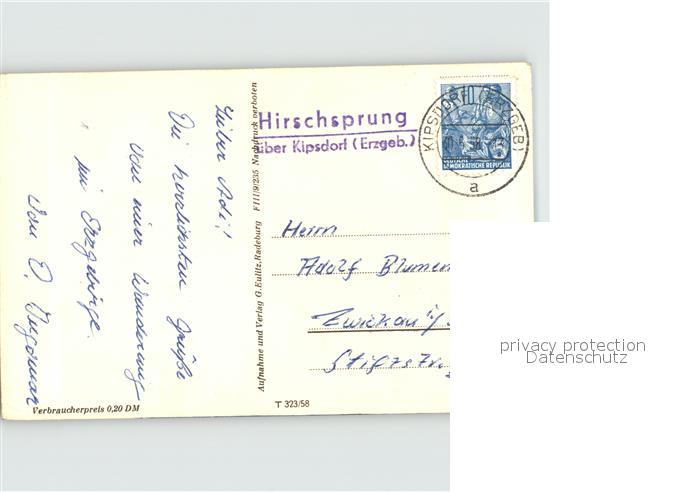 Lieber Adi!
Die herzlichsten Grüße
von einer Wanderung
im Erzgebirge.
Vom O.
Verbraucherpreis 0,20 DM
Aufnahme und Verlag G. Eulitz, Radeburg F III/9/235 Nachdruck verboten
Hirschsprung
über Kipsdorf (Erzgeb.)
KIPSDORF (ERZGEB)
a
DEUTSCHE
DEMOKRATISCHE REPUBLIK
Herrn
Adolf Blumen
Zwickau i/
T 323/58
privacy protection
Datenschutz